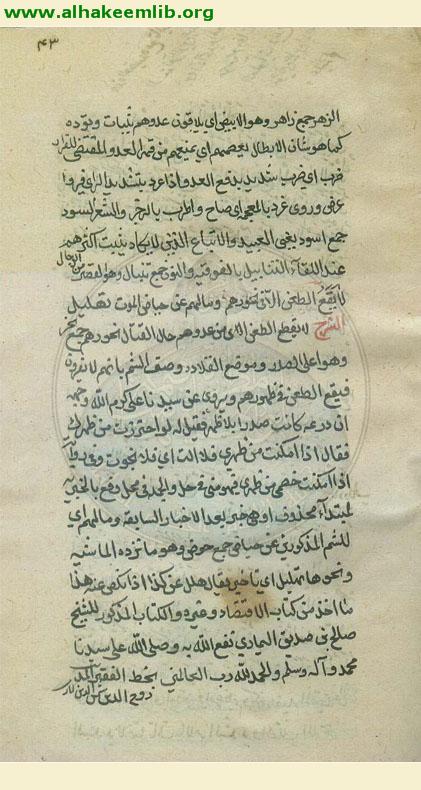 www.alhakeemlib.org
٤٣
الزهر جمع زاهر وهو الابيض اي يلاقون عدوهم بثبات وتؤده
كما هو شان الابطال يعصمهم اي يمنعهم من العدو المقتضى للفرار
ضرب اي ضرب شديد يدفع العدو اذا عرد بتشديد الراي فر
وروى غرد بالمعجمة اي صاح واطرب بالزجر والشعر السود
جمع اسود يعني العبيد والاتباع الذين لا يكاد يثبت اكثرهم
عند اللقاء التنابيل بالفوقيه جمع تنبال وهو القصير من الرجال
لا يقع الطعن الا في نحورهم وما لهم عن حياض الموت تهليل
الشرح لا يقع الطعن من عدوهم حال القتال نحورهم جمع نحر
وهو اعلى الصدر وموضع القلاده وصفهم بانهم لا يفرون
فيقع الطعن في ظهورهم ويروى عن سيدنا علي كرم الله وجهه
ان درعه كانت صدرا بلا ظهر فقيل له لو احترزت من ظهرك
فقال اذا امكنت من ظهري فلا نجوت وفي رواية
اذا امكنت خصمي من ظهري في حل والجملة في محل رفع بالخبريه
لمبتداء محذوف او هي خبر بعد الاخبار السابقه وما لهم اي
للشم المذكورين عن حياض جمع حوض وهو ما ترده الماشيه
ونحوها تهليل اي تاخير يقال هلل عن كذا اذا نكص عنه هذا
ما اخذ من كتاب الاقتصاد وغيره والكتاب المذكور للشيخ
صالح بن صديق نفع الله به وصلى الله على سيدنا
محمد وآله وسلم والحمد لله رب العالمين بخط الفقير